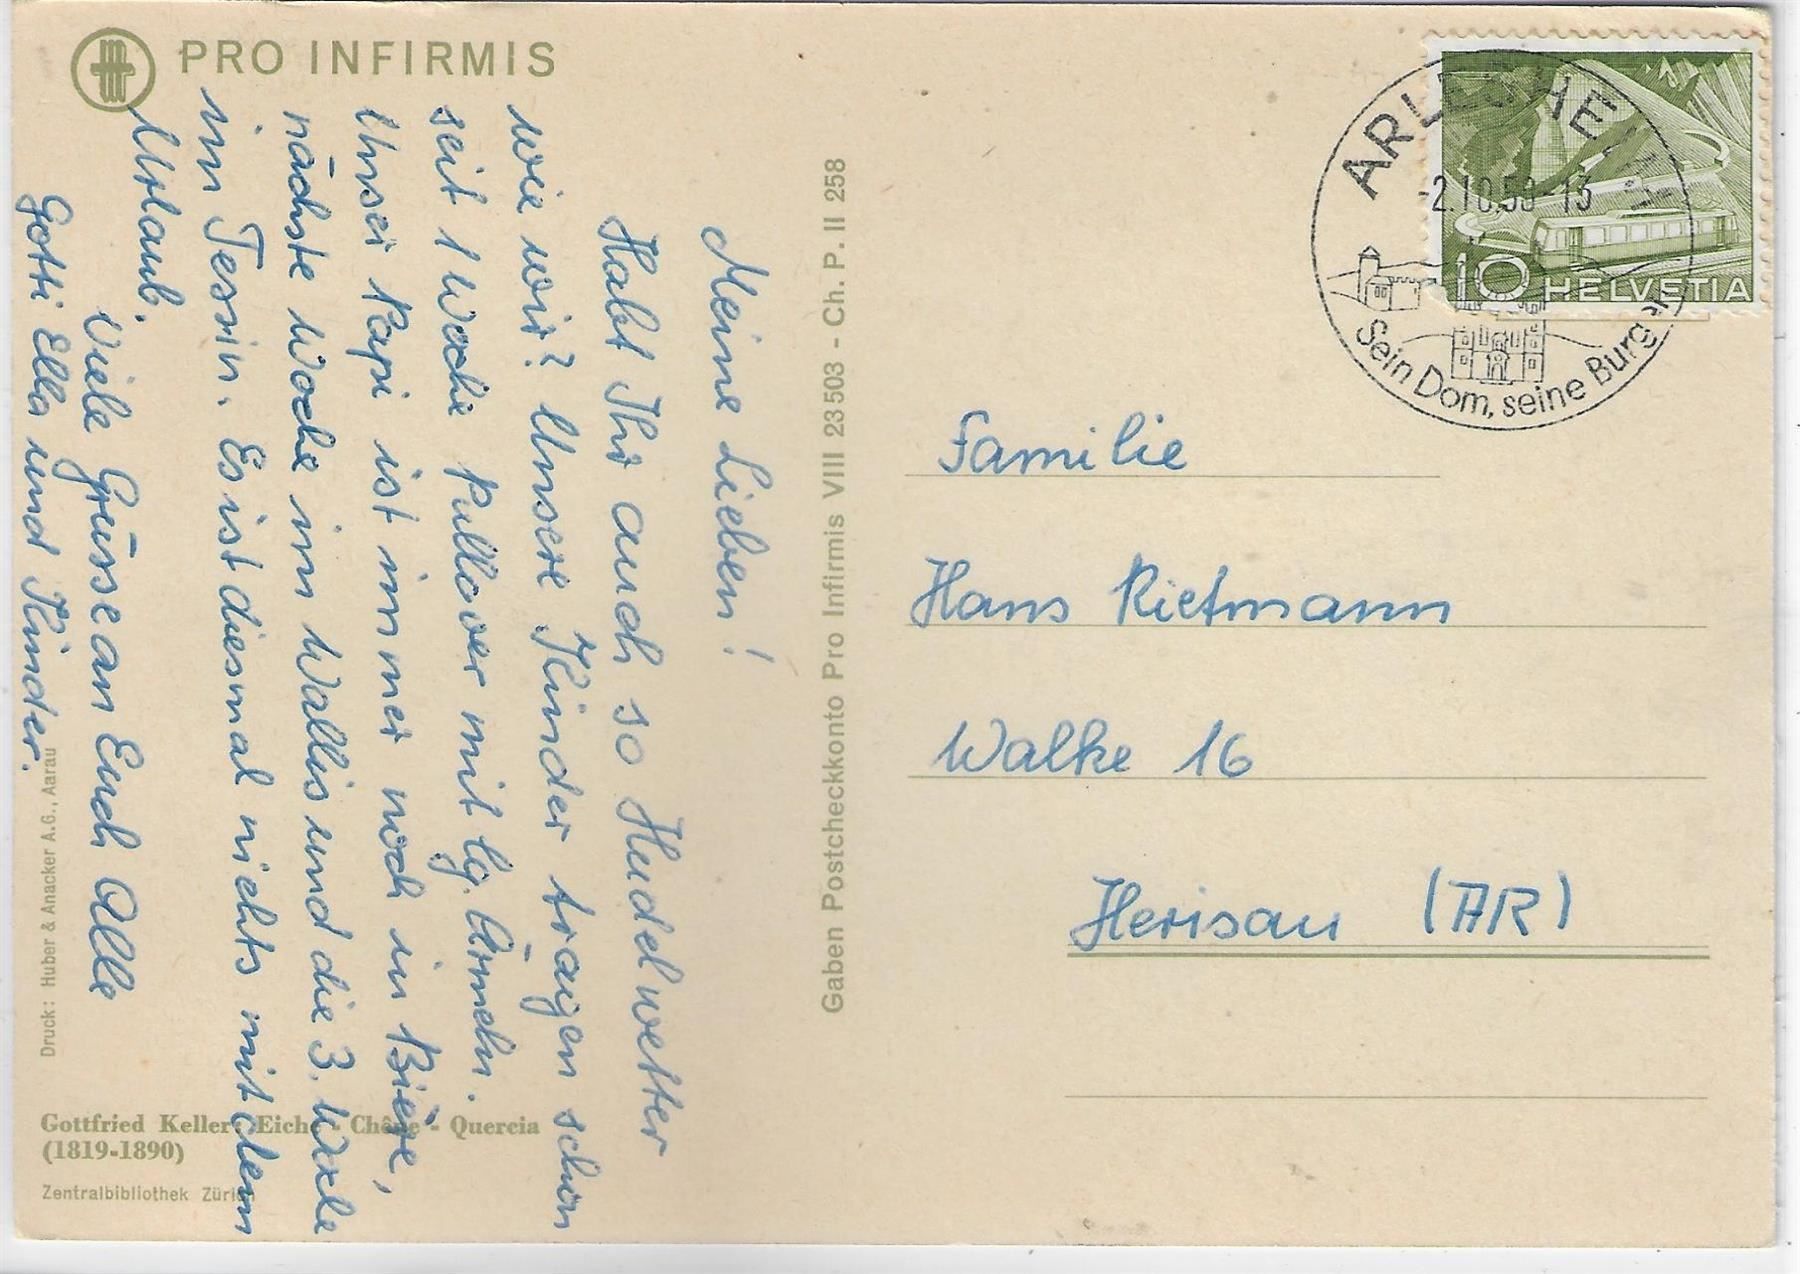 PRO INFIRMIS
Meine Lieben!
Habt Ihr auch so Hudelwetter
wie wir? Unsere Kinder tragen schon
seit 1 Woche Pullover mit lg. Ärmeln.
Unser Papi ist immer noch in Bière,
nächste Woche im Wallis und die 3. Woche
im Tessin. Es ist diesmal nichts mit dem
Urlaub.
Viele Grüsse an Euch Alle
Gotti Ella und Kinder.
Druck: Huber & Anacker A.G., Aarau
Gottfried Keller: Eiche - Chêne - Quercia
(1819-1890)
Zentralbibliothek Zürich
Gaben Postcheckkonto Pro Infirmis VIII 23503 - Ch. P. II 258
ARLESHEIM
-2.10.59-13
Sein Dom, seine Burgen
10 HELVETIA
Familie
Hans Rietmann
Walke 16
Herisau (AR)